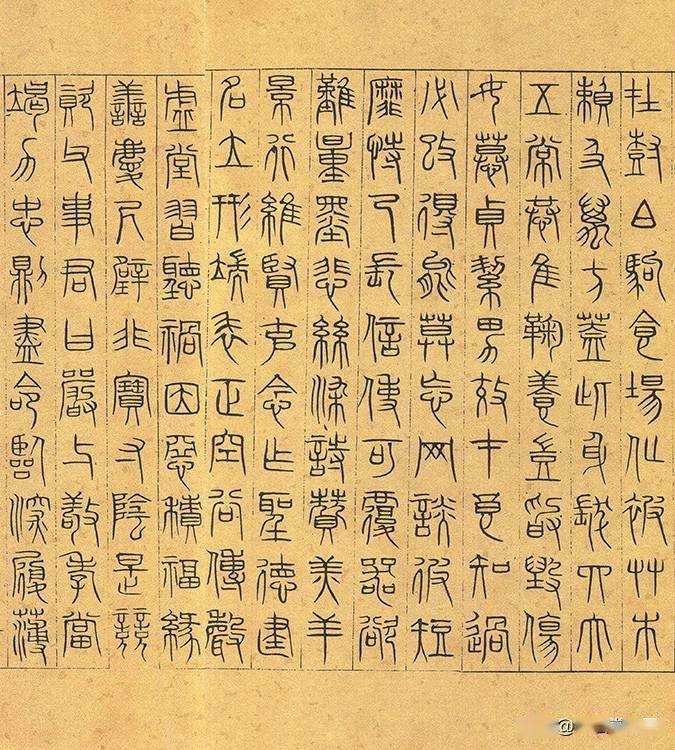 在樹白駒食場化被艸木
賴及萬方蓋此身髮四大
五常恭隹鞠養豈敢毀傷
女慕貞絜男效才良知過
必改得能莫忘网談彼短
靡恃己長信使可覆器欲
難量墨悲絲染詩贊羔羊
景行維賢克念作聖德建
名立形端表正空谷傳聲
虛堂習聽禍因惡積福緣
善慶尺璧非寶寸陰是競
資父事君曰嚴與敬孝當
竭力忠則盡命臨深履薄